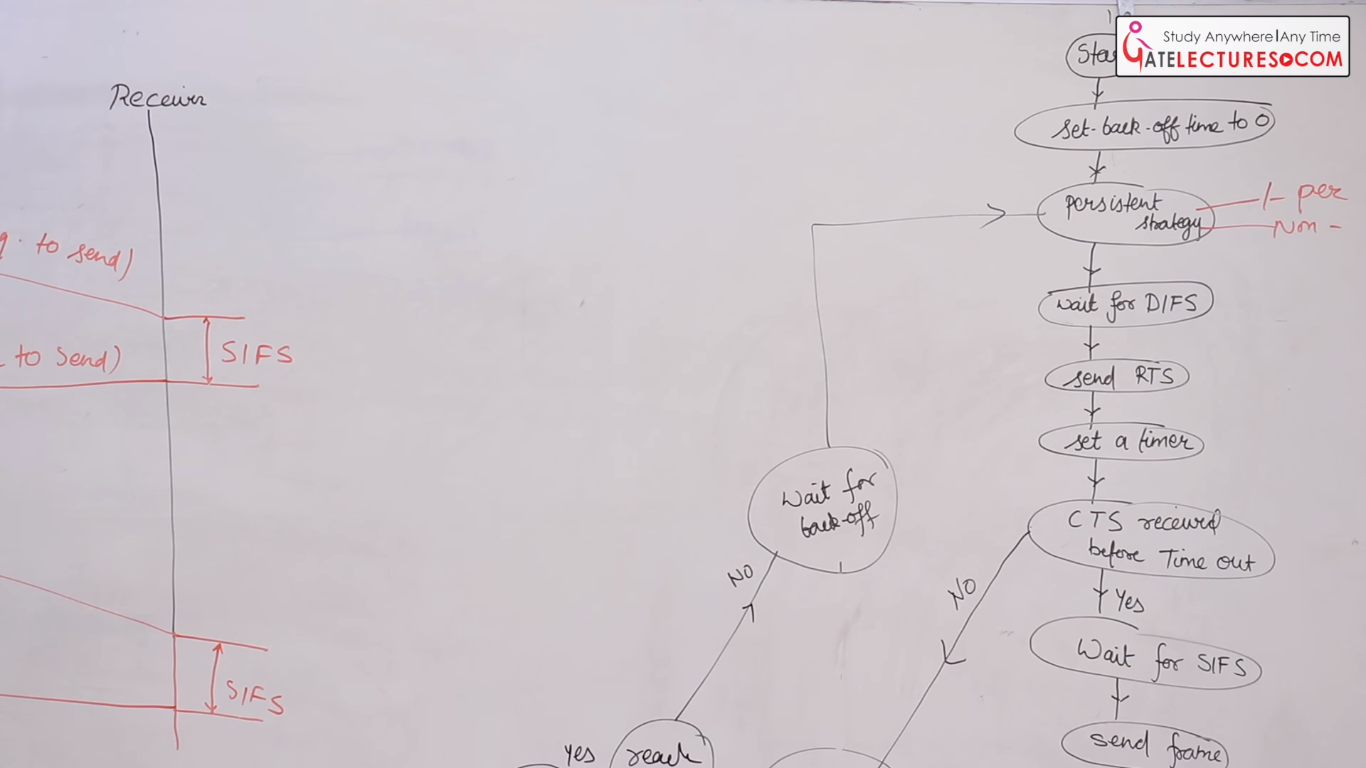 Study Anywhere|Any Time
GATELECTURES.COM
Receiver
to send)
SIFS
to Send)
SIFS
set-back-off time to 0
persistent
strategy
1- per
Non -
wait for DIFS
send RTS
set a timer
CTS received
before Time out
NO
Yes
Wait for SIFS
send frame
Wait for
back-off
NO
Yes
reach